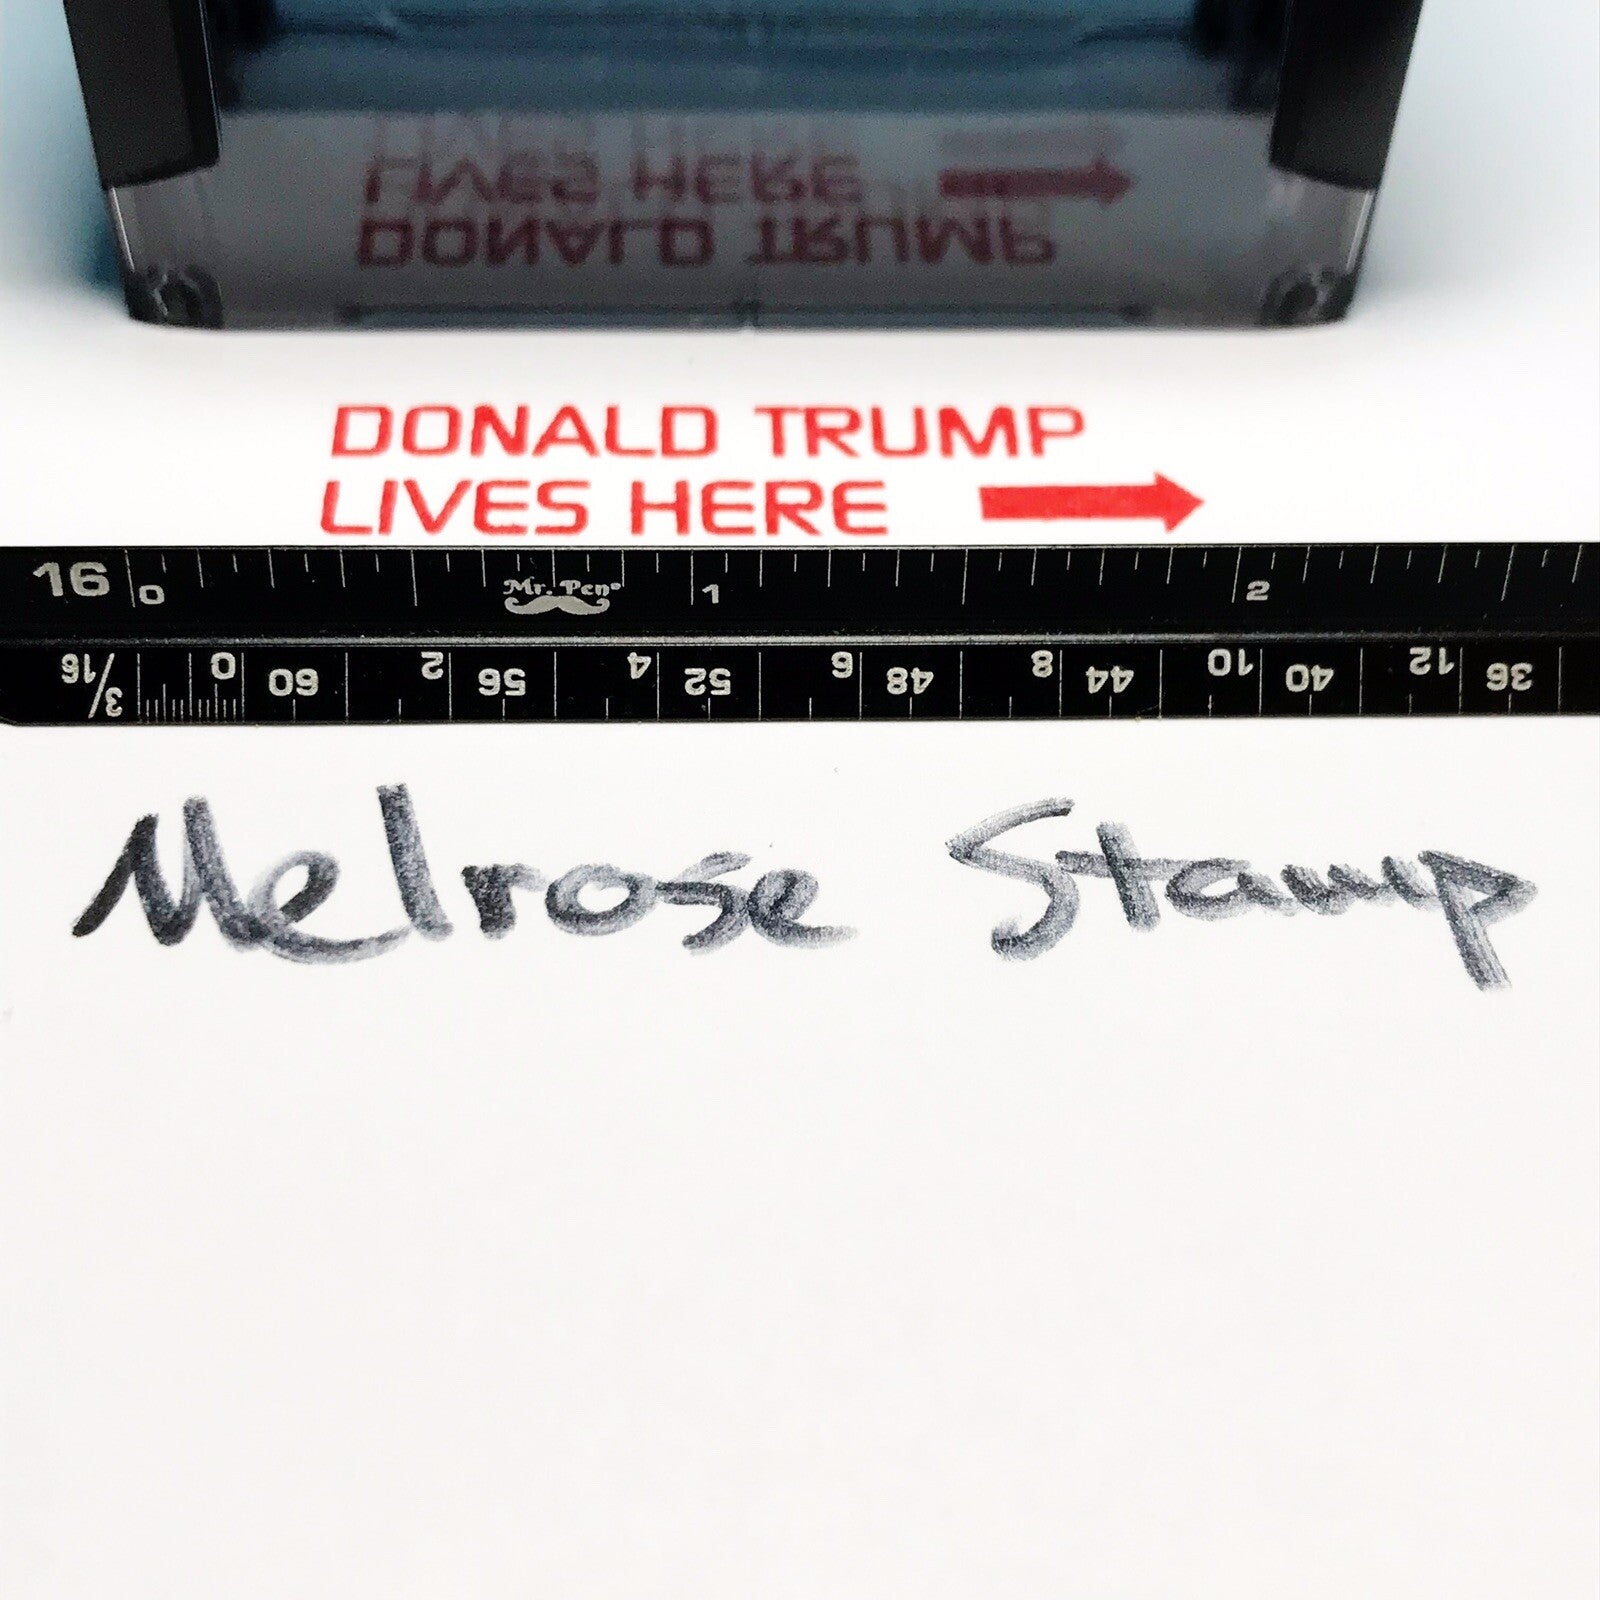 LIVES HERE
DONALD TRUMP
DONALD TRUMP
LIVES HERE
16 0 Mr. Pen® 1 2
3/16 0 60 2 56 4 52 6 48 8 44 10 40 12 36
Melrose Stamp